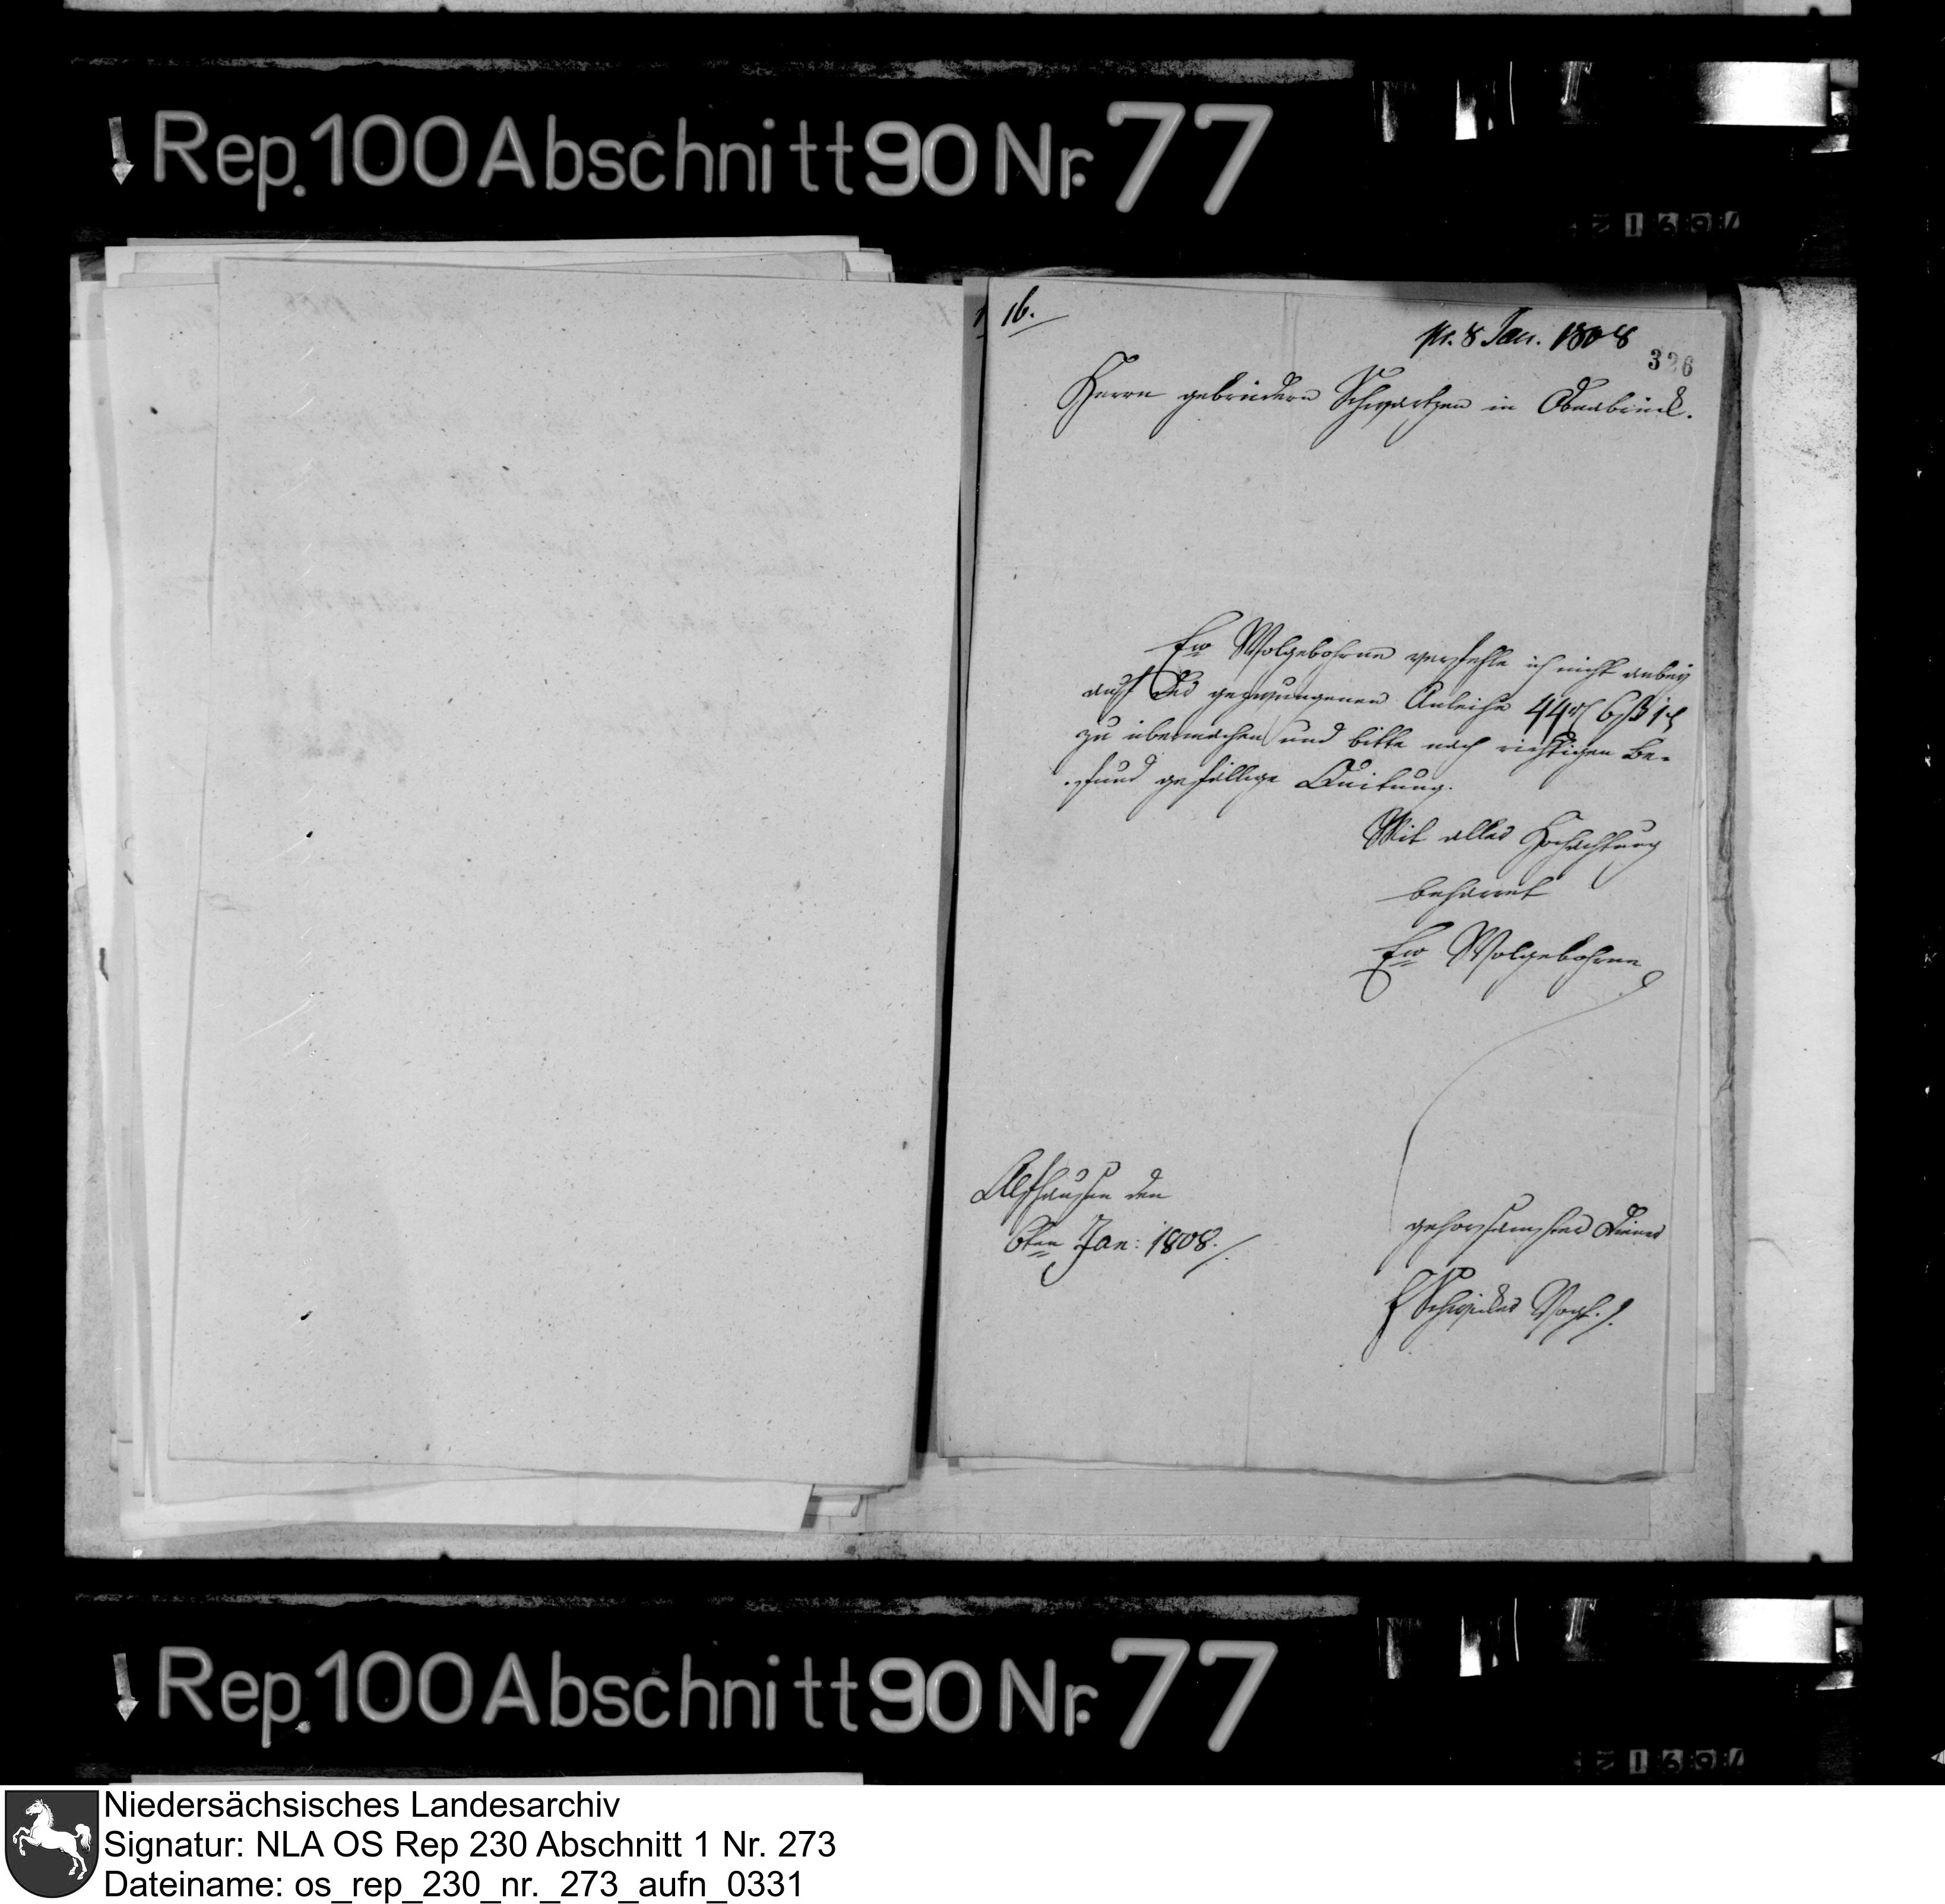 Rep. 100 Abschnitt 90 Nr. 77
16.
pr. 8 Jan. 1808
326
Herrn gebrüdern Schwartzen in Osnabrück.
Ew Wolgebohrne verfehle ich nicht anbey
auf der gezwungenen Anleihe 44 rt 6 ß 1 d
zu übermachen und bitte nach richtigen Be-
fund gefällige Quitung.
Mit aller Hochachtung
beharret
Ew Wolgebohrne
Alfhausen den
6ten Jan: 1808.
gehorsamster Diener
Vogt
Rep. 100 Abschnitt 90 Nr. 77
Niedersächsisches Landesarchiv
Signatur: NLA OS Rep 230 Abschnitt 1 Nr. 273
Dateiname: os_rep_230_nr._273_aufn_0331